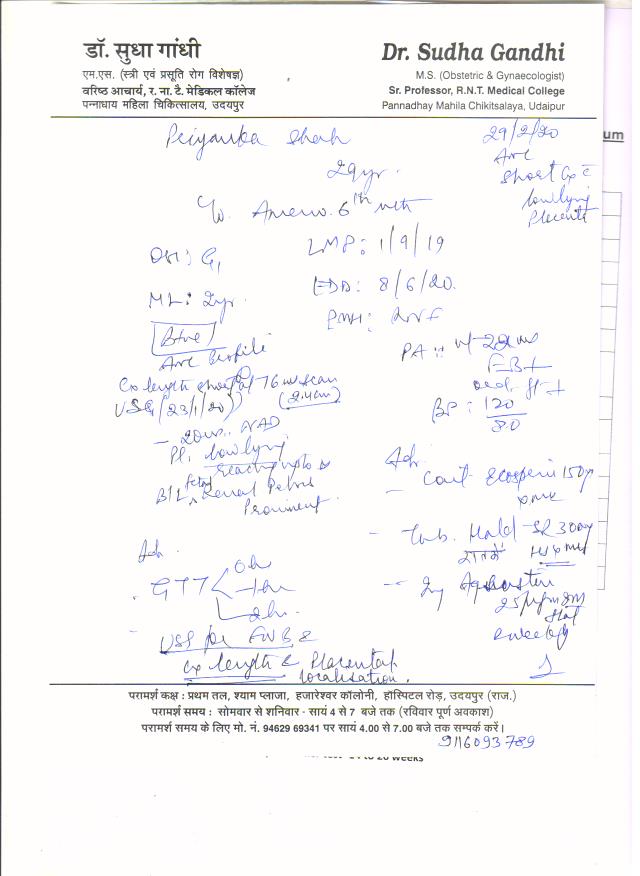 डॉ. सुधा गांधी
एम.एस. (स्त्री एवं प्रसूति रोग विशेषज्ञ)
वरिष्ठ आचार्य, र. ना. टै. मेडिकल कॉलेज
पन्नाधाय महिला चिकित्सालय, उदयपुर
Dr. Sudha Gandhi
M.S. (Obstetric & Gynaecologist)
Sr. Professor, R.N.T. Medical College
Pannadhay Mahila Chikitsalaya, Udaipur
um
Priyanka Shah
29yr.
29/2/20
ANC
Short Cx c̄
lowlying
Placenta
6th mth
LMP: 1/9/19
EDD: 8/6/20.
G1
ML: 2yr.
B+ve
ANC Profile
Cx length short at 16 wk scan
(2.4cm)
USG (23/1/20)
- 20wk. NAD
Pl. lowlying
reaching upto
B/L fetal Renal Pelvis
Prominent
PA:
FB+
BP: 120
80
Adv.
- Cont Ecosperin 150
- Tab. SR 30
रात को
- Inj
2 weekly
Adv.
- GTT 0h
1hr
2hr.
- USG for FWB &
Cx length & Placental
localisation.
परामर्श कक्ष : प्रथम तल, श्याम प्लाजा, हजारेश्वर कॉलोनी, हॉस्पिटल रोड़, उदयपुर (राज.)
परामर्श समय : सोमवार से शनिवार - सायं 4 से 7 बजे तक (रविवार पूर्ण अवकाश)
परामर्श समय के लिए मो. नं. 94629 69341 पर सायं 4.00 से 7.00 बजे तक सम्पर्क करें।
9116093789
to 20 weeks